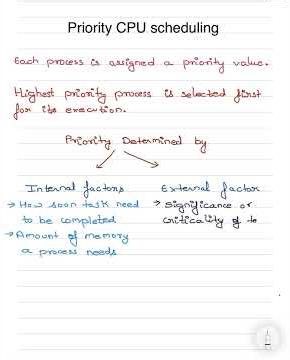 Priority CPU scheduling
Each process is assigned a priority value.
Highest priority process is selected first
for its execution.
Priority Determined by
Internal factors
→ How soon task need
to be completed
→ Amount of memory
a process needs
External factor
→ significance or
criticality of te